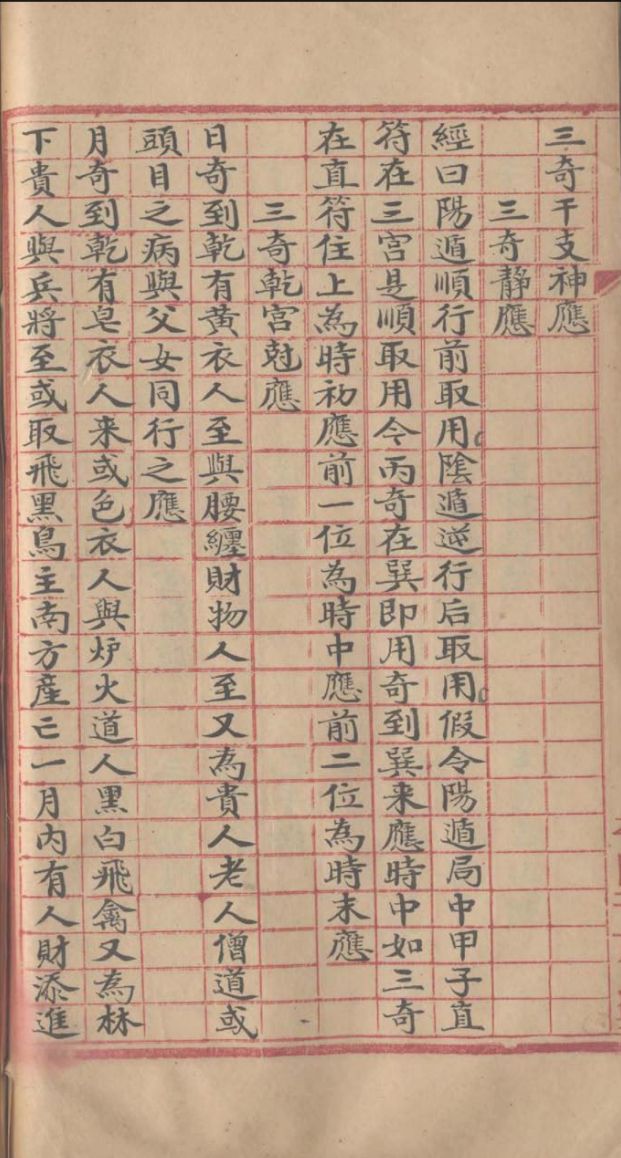 三奇干支神應
三奇靜應
經曰陽遁順行前取用陰遁逆行后取用假令陽遁局中甲子直
符在三宮是順取用令丙奇在巽即用奇到巽來應時中如三奇
在直符住上為時初應前一位為時中應前二位為時末應
三奇乾宮尅應
日奇到乾有黃衣人至與腰纏財物人至又為貴人老人僧道或
頭目之病與父女同行之應
月奇到乾有皂衣人来或色衣人與炉火道人黑白飛禽又為林
下貴人與兵將至或取飛黑鳥主南方產亡一月內有人財添進